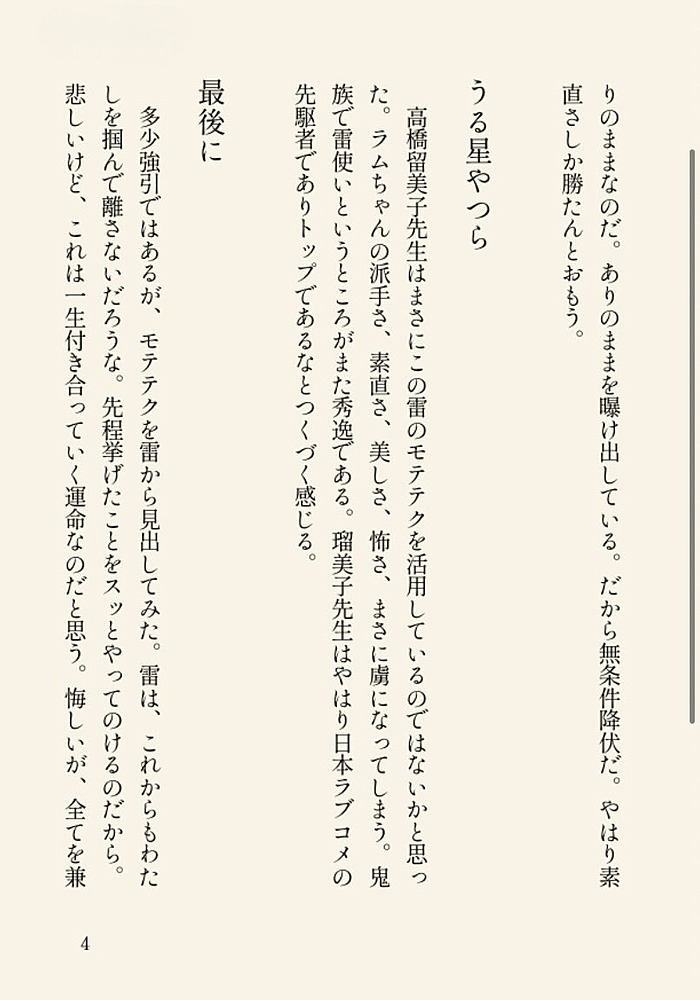 りのままなのだ。ありのままを曝け出している。だから無条件降伏だ。やはり素
直さしか勝たんとおもう。
うる星やつら
高橋留美子先生はまさにこの雷のモテテクを活用しているのではないかと思っ
た。ラムちゃんの派手さ、素直さ、美しさ、怖さ、まさに虜になってしまう。鬼
族で雷使いというところがまた秀逸である。瑠美子先生はやはり日本ラブコメの
先駆者でありトップであるなとつくづく感じる。
最後に
多少強引ではあるが、モテテクを雷から見出してみた。雷は、これからもわた
しを掴んで離さないだろうな。先程挙げたことをスッとやってのけるのだから。
悲しいけど、これは一生付き合っていく運命なのだと思う。悔しいが、全てを兼
4